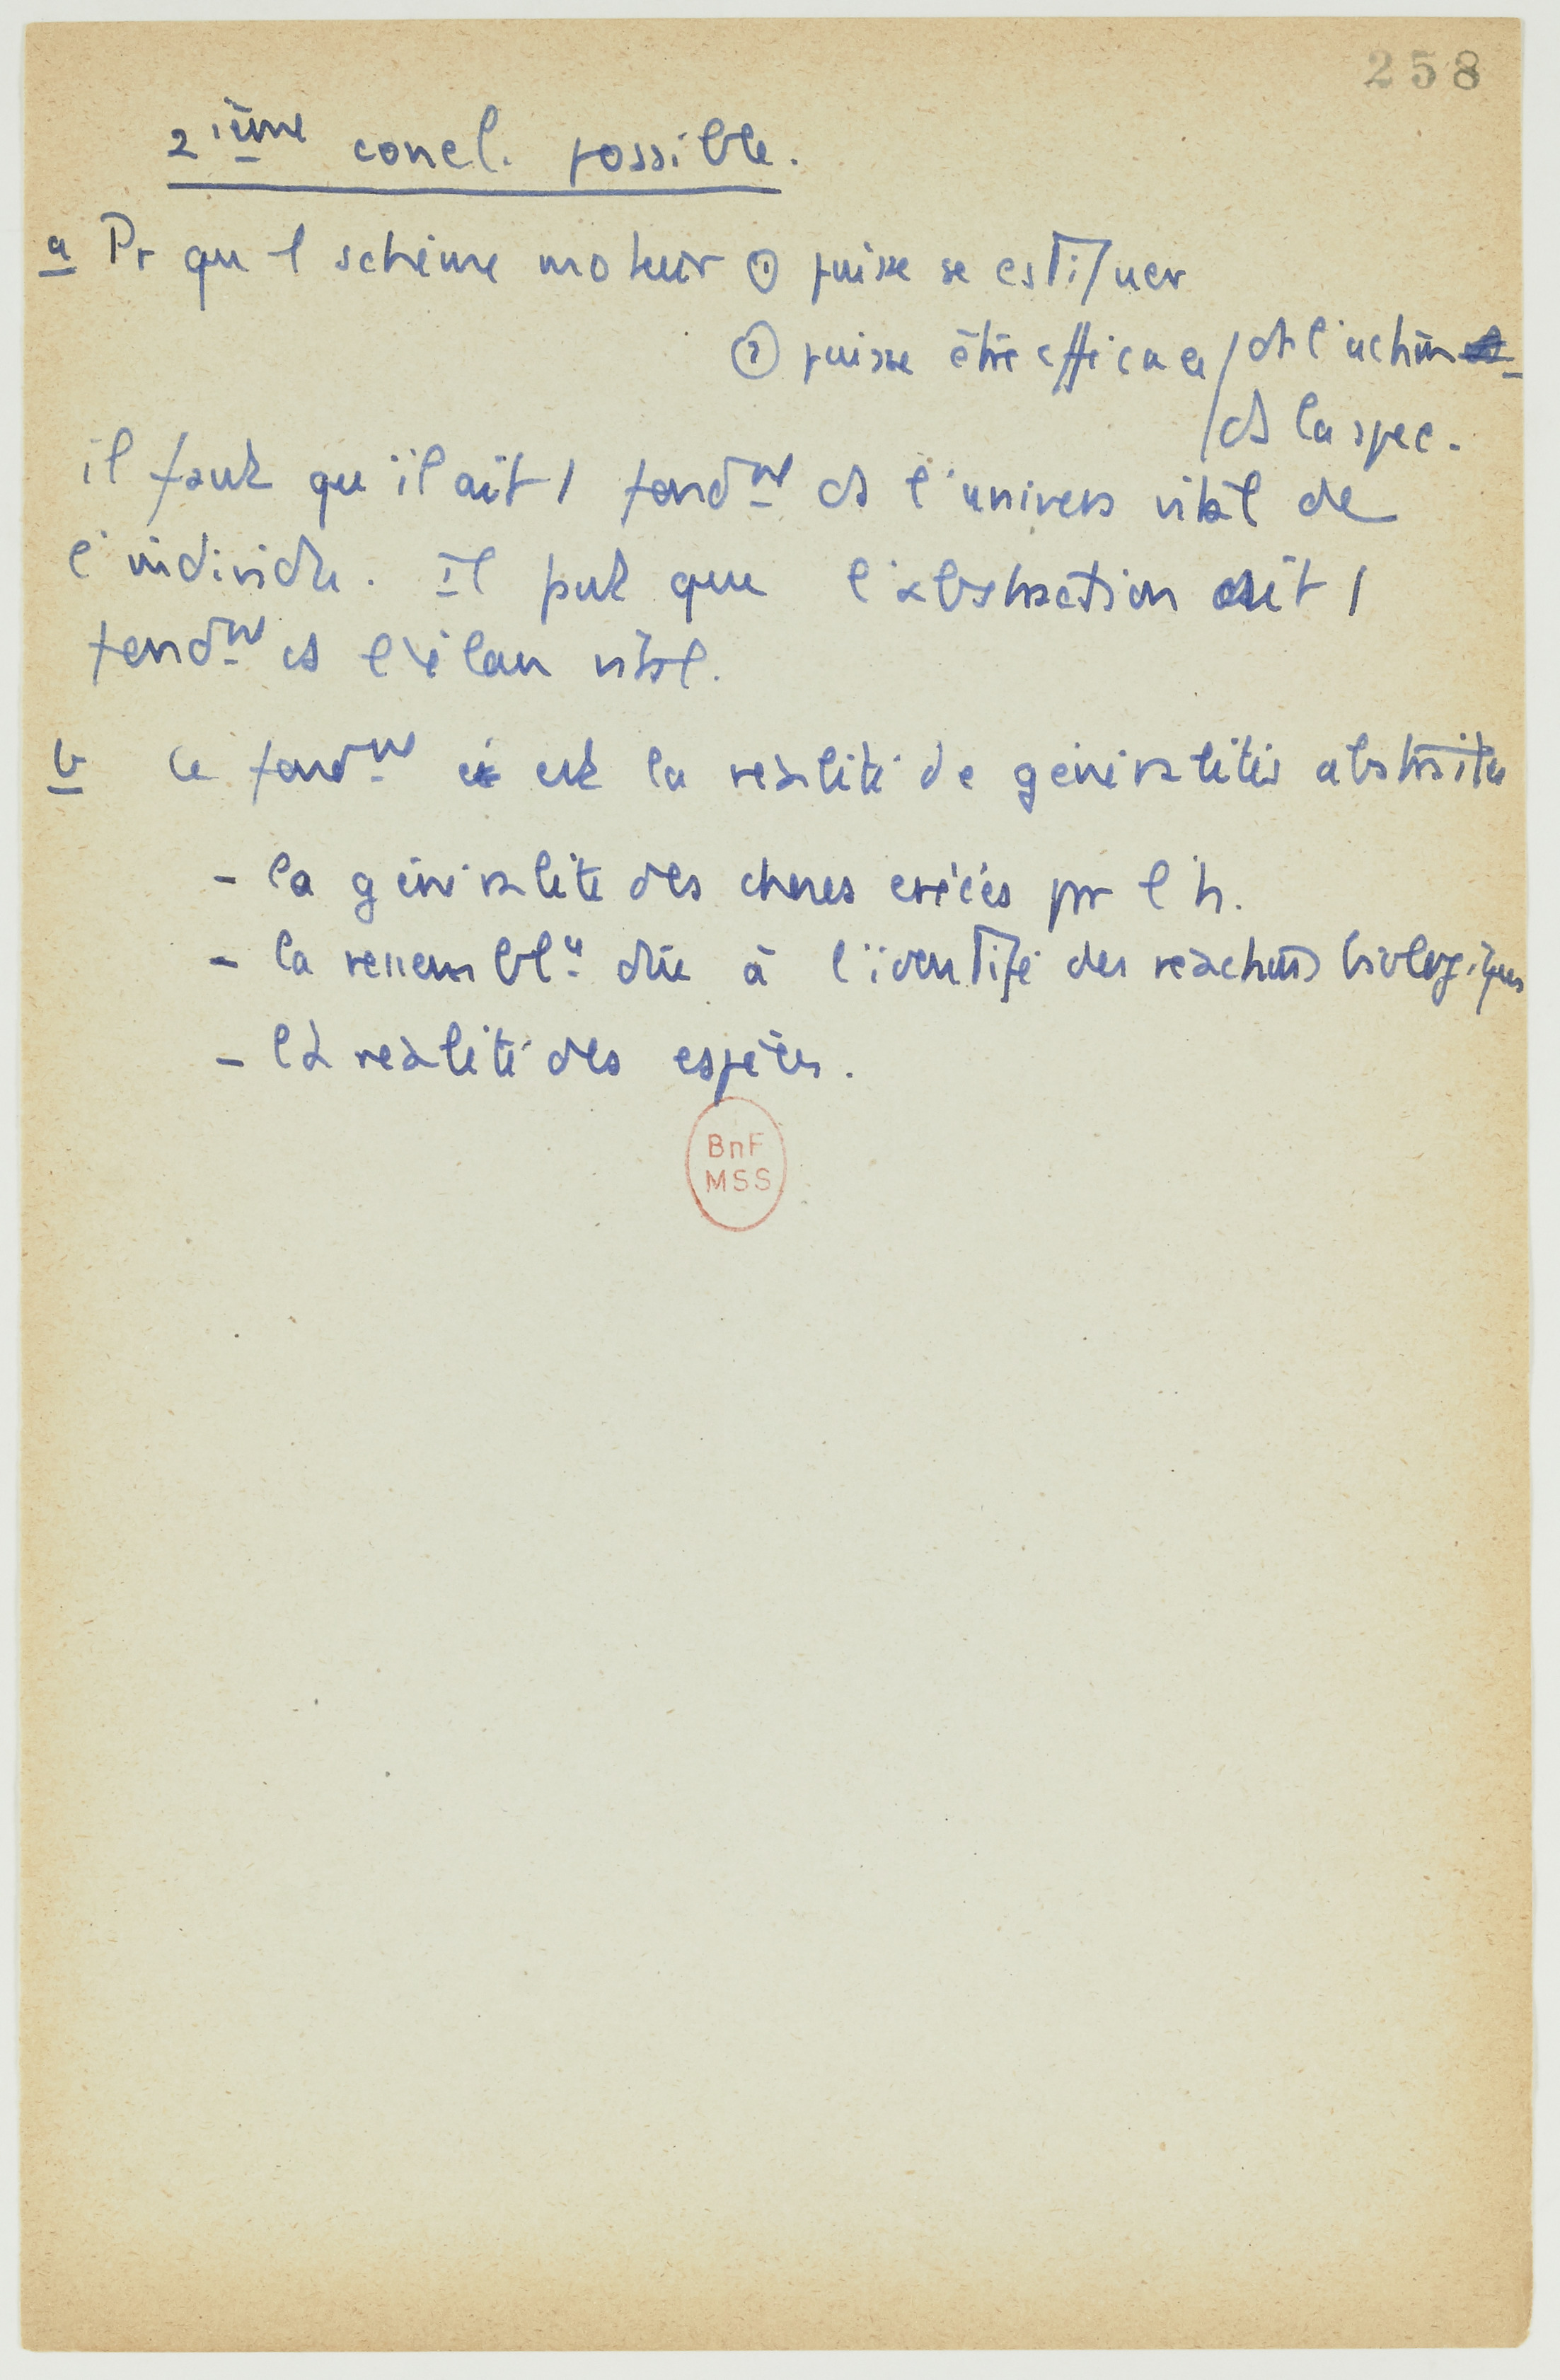 258
2ième concl. possible.
a Pr que l schème moteur ① puisse se cstituer
② puisse être efficace / ds l'action
/ ds la spec.
il faut qu'il ait 1 fondnt ds l'univers vital de
l'individu. Il faut que l'abstraction ait 1
fondnt ds l'élan vital.
b Ce fondnt c'est la réalité de généralités abstraites
- la généralité des choses créées par l'h.
- la ressemblce due à l'identité des réactions biologiques
- la réalité des espèces.
BnF
MSS